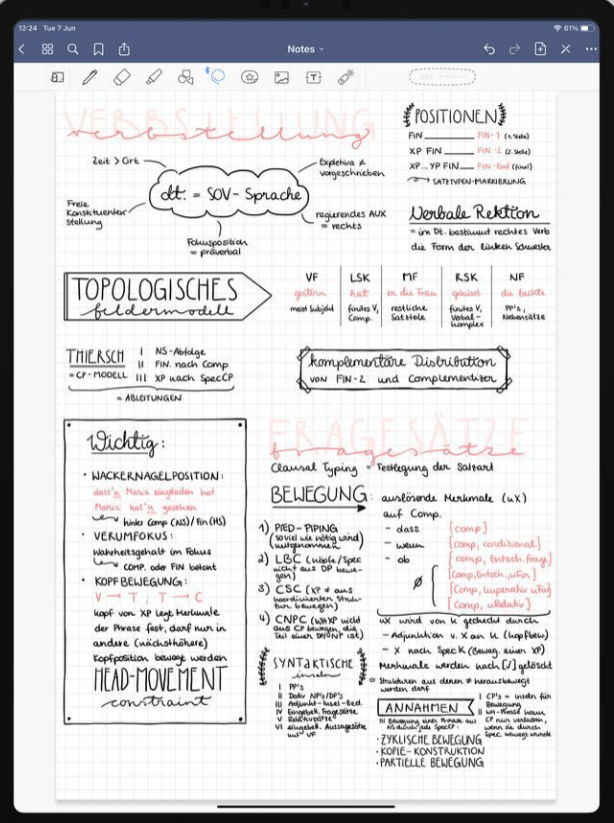 12:24 Tue 7 Jun
61%
Notes
VERBSTELLUNG
verbstellung
Zeit > Ort
Expletiva ≠
vorgeschrieben
dt. = SOV-Sprache
Freie
Konstituenten-
stellung
regierendes AUX
= rechts
Fokusposition
= präverbal
POSITIONEN
FIN FIN-1 (1. Stelle)
XP FIN FIN-2 (2. Stelle)
XP... YP FIN FIN-End (final)
SATZTYPEN-MARKIERUNG
Verbale Rektion
= im Dt. bestimmt rechtes Verb
die Form der linken Schwester
TOPOLOGISCHES
feldermodell
VF LSK MF RSK NF
gestern hat er die Frau geküsst die lachte
meist Subjekt
finites V,
Comp.
restliche
Satzteile
finites V,
Verbal-
komplex
PP's,
Nebensätze
THIERSCH
= CP-MODELL
I NS-Abfolge
II FIN. nach Comp
III XP nach SpecCP
= ABLEITUNGEN
komplementäre Distribution
von FIN-2 und Complementizer
Wichtig:
• WACKERNAGELPOSITION:
dass'n Maria eingeladen hat
Maria hat'n gesehen
hinter Comp (NS) / Fin (HS)
• VERUMFOKUS:
Wahrheitsgehalt im Fokus
COMP. oder FIN betont
• KOPFBEWEGUNG:
V → T, T → C
Kopf von XP legt Merkmale
der Phrase fest, darf nur in
andere (nächsthöhere)
Kopfposition bewegt werden
HEAD-MOVEMENT
constraint
FRAGESÄTZE
fragesätze
Clausal Typing = Festlegung der Satzart
BEWEGUNG: auslösende Merkmale (uX)
auf Comp.
- dass [comp]
- wenn [comp, conditional]
- ob [comp, Entsch.frage]
ø [Comp, Entsch, uFin]
[Comp, Imperativ uFin]
[Comp, uRelativ]
1) PIED-PIPING
(soviel wie nötig wird
mitgenommen)
2) LBC (Köpfe/Spec
nicht aus DP bewe-
gen)
3) CSC (XP ≠ aus
koordinierten Struk-
turen bewegen)
4) CNPC (WHXP nicht
aus CP bewegen, die
Teil einer DP/NP ist)
uX wird von K gecheckt durch
- Adjunktion v. X an K (Kopfbew)
- X nach Spec K (Beweg. einer XP)
Merkmale werden nach [√] gelöscht
SYNTAKTISCHE
inseln
= Strukturen aus denen ≠ herausbewegt
werden darf
I PP's
II Dativ NP's/DP's
III Adjunkt-Insel-Bed.
IV Eingebett. Fragesätze
V Relativsätze
VI eingebett. Aussagesätze
VF
ANNAHMEN
I CP's = Inseln für
Bewegung
II WH-Phrase kann
CP nur verlassen,
wenn sie durch
Spec bewegt wurde
III Bewegung einer Phrase aus
NS durch jede SpecCP:
• ZYKLISCHE BEWEGUNG
• KOPIE-KONSTRUKTION
• PARTIELLE BEWEGUNG